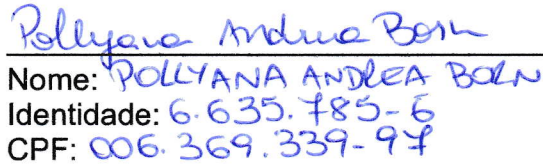 Pollyana Andrea Born
Nome: POLLYANA ANDREA BORN
Identidade: 6.635.785-6
CPF: 006.369.339-97